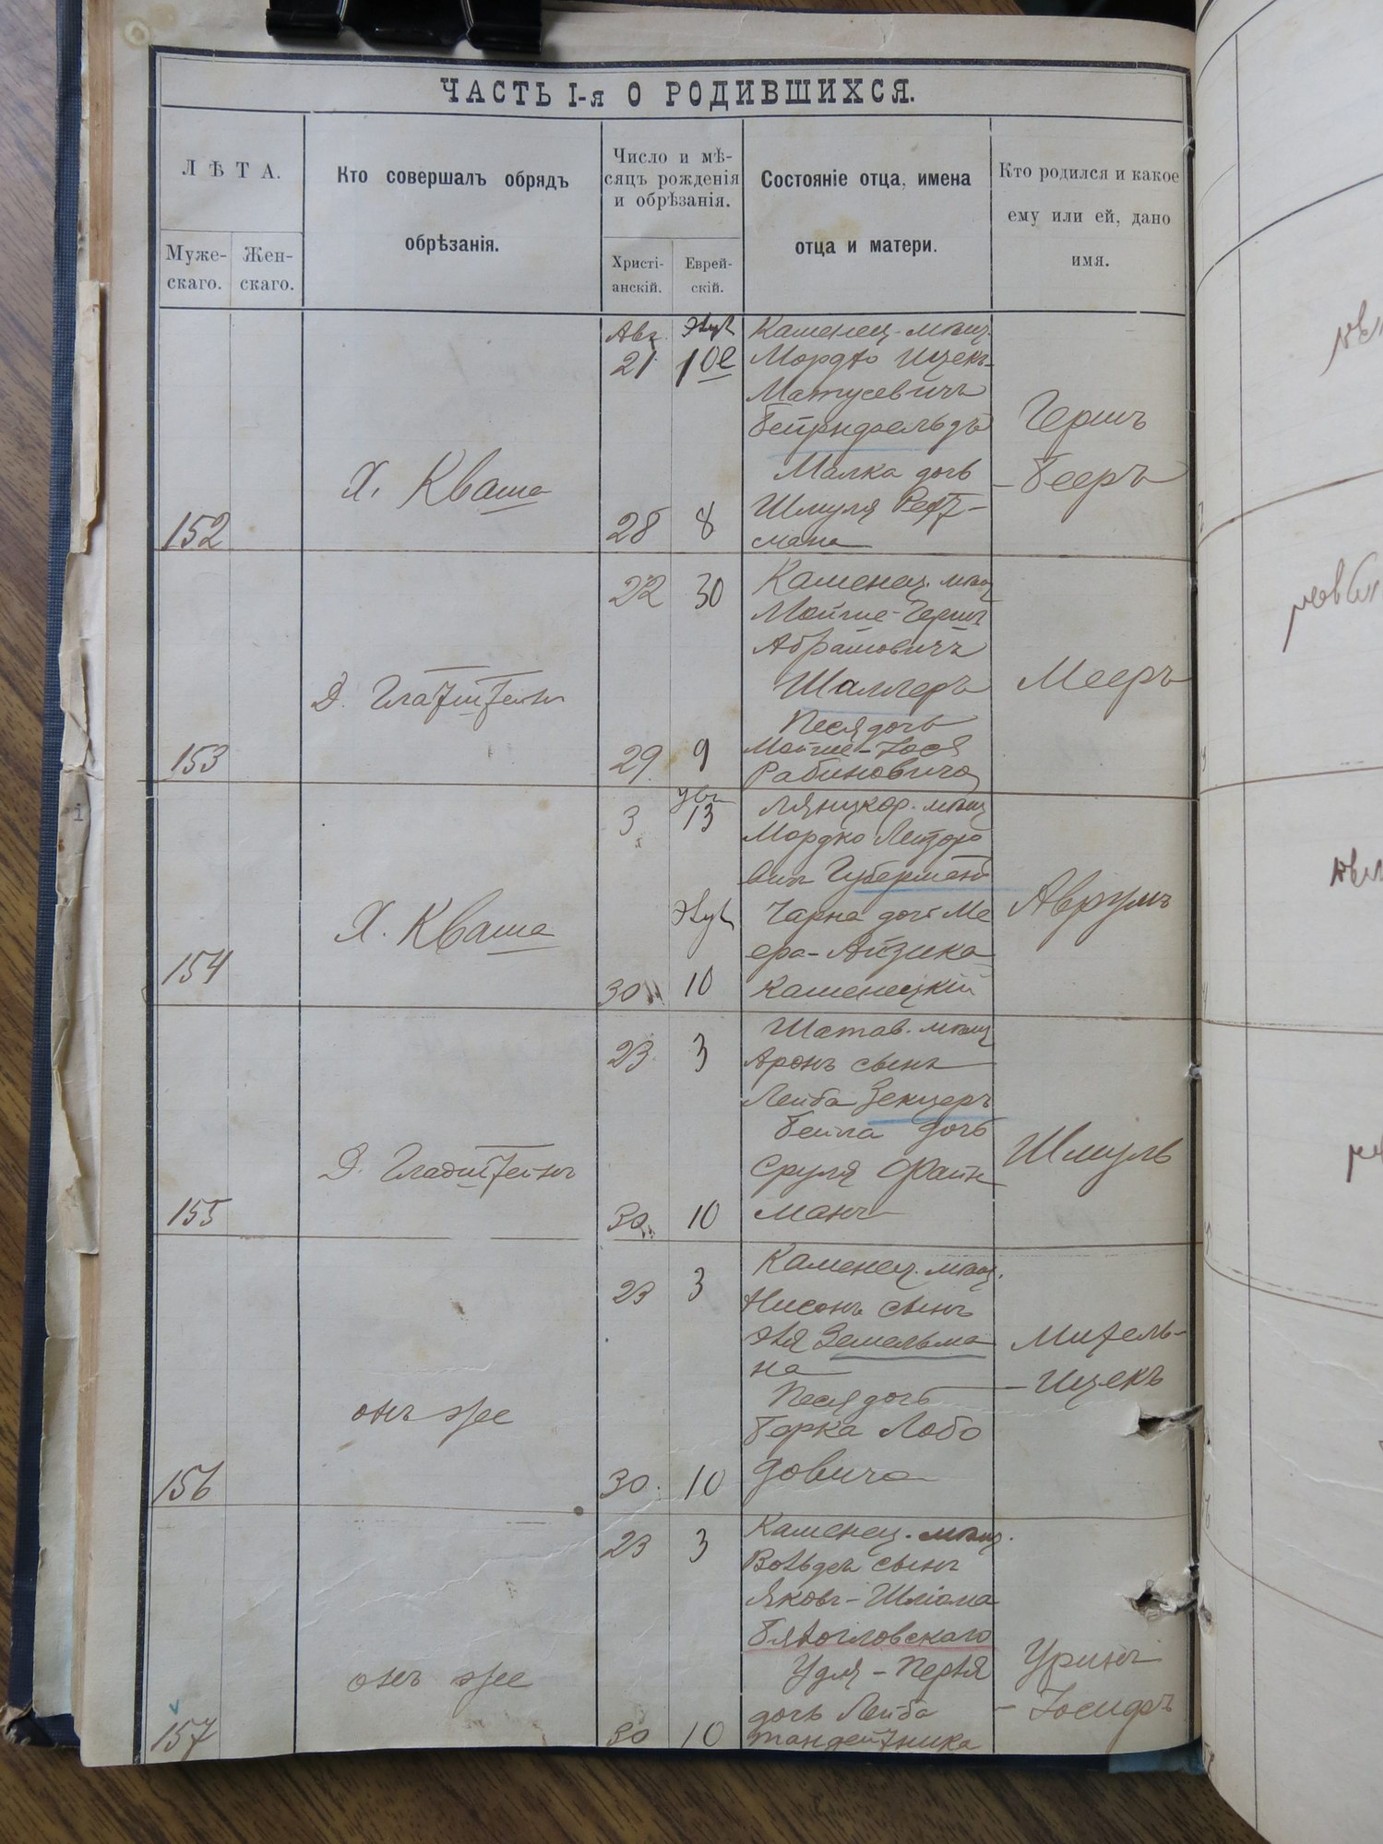 ЧАСТЬ I-я О РОДИВШИХСЯ.
ЛѢТА.
Муже-
скаго.
Жен-
скаго.
Кто совершалъ обрядъ
обрѣзанія.
Число и мѣ-
сяцъ рожденія
и обрѣзанія.
Христі-
анскій.
Еврей-
скій.
Состояніе отца, имена
отца и матери.
Кто родился и какое
ему или ей, дано
имя.
152
Х. Кваша
Авг.
21
28
10
8
Каменец. мѣщ.
Мордко Ицекъ-
Матусевичъ
Малка дочь
Шмуля
мана
Гершъ
-Бееръ
153
22
29
30
9
Каменец. мѣщ
Мойше-Герш
Абрамовичъ
Шаллеръ
Песя дочь
Мойше-Іося
Рабиновича
Мееръ
154
Х. Кваша
3
30
13
10
Лянцкор. мѣщ
Мордко Лейзоро
вич Губерманъ
Чарна дочь Ме
ера-Айзика
Каменецкій
Аврумъ
155
Д. Гладштейнъ
23
30
3
10
Шатав. мѣщ
Аронъ сынъ
Лейба Зекцеръ
Бейла дочь
Сруля Файн
манъ
Шмуль
156
онъ же
23
30
3
10
Каменец. мѣщ.
Нисонъ сынъ
Земельма
на
Песя дочь
Борка Лобо
довича
-Ицекъ
157
онъ же
23
30
3
10
Каменец. мѣщ.
сынъ
Яковъ-Шліома
Удля-Перля
дочь Лейба
тандейтника
Уринъ
-Іосифъ